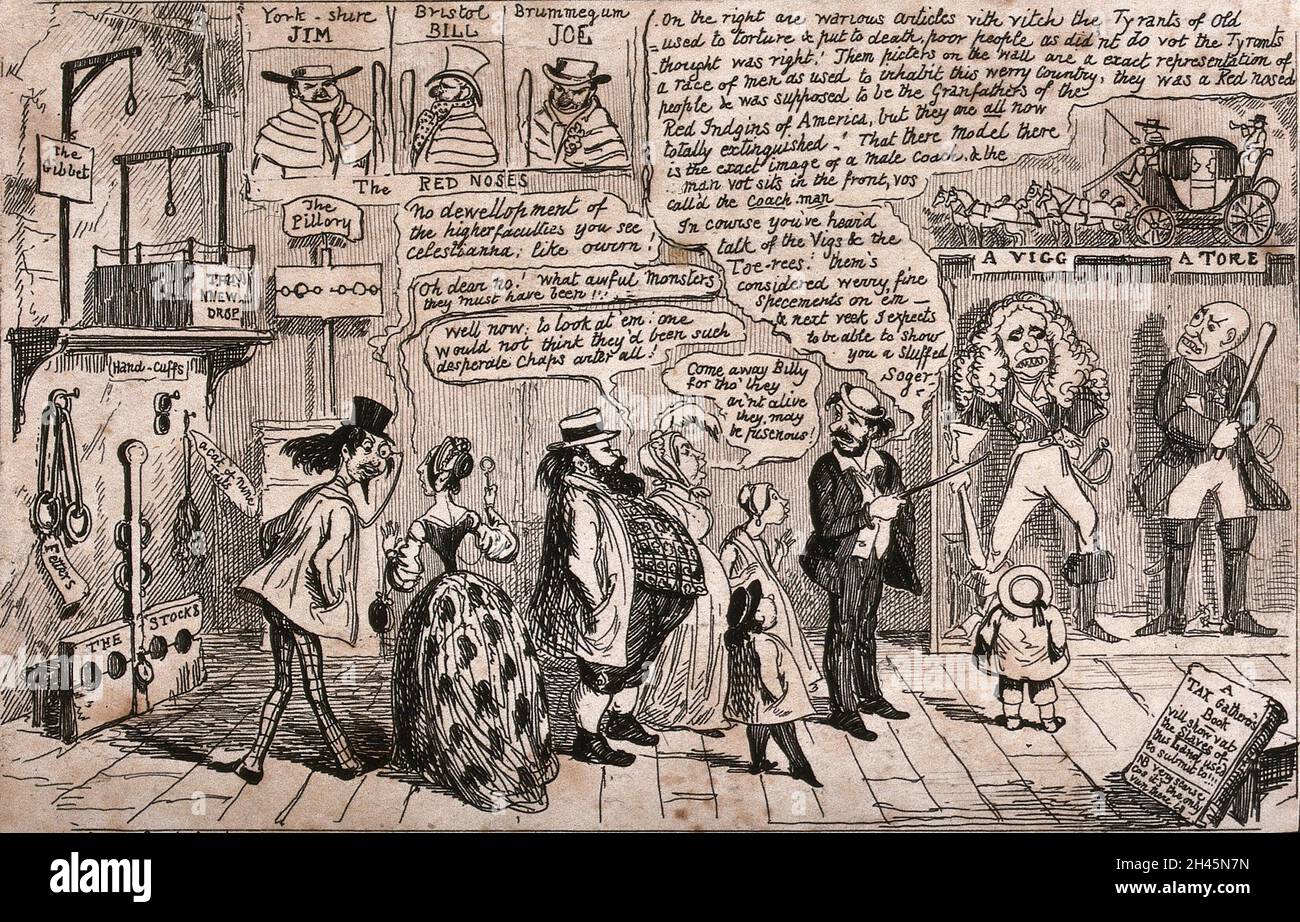 York-shire
JIM
Bristol
BILL
Brummegum
JOE
The RED NOSES
On the right are warious articles vith vitch the Tyrants of Old
used to torture & put to death, poor people as did nt do vot the Tyrants
thought was right! Them picters on the wall are a exact representation of
a race of men as used to inhabit this werry Country, they was a Red nosed
people & was supposed to be the Granfathers of the
Red Indgins of America, but they are all now
totally extinguished! That there model there
is the exact image of a male Coach, & the
man vot sits in the front, vos
call'd the Coach man
In course you've heard
talk of the Vigs & the
Toe-rees! them's
considered werry, fine
Specements on em —
& next veek I expects
to be able to show
you a Stuffed
Soger
The
Gibbet
The
Pillory
DROP
Hand-Cuffs
a Cat o' nine
tails
Fetters
THE STOCKS
No dewellopment of
the higher faculties you see
Celestianna, like owrn!
Oh dear no! What awful Monsters
they must have been!!!
Well now; to look at em; one
would not think they'd been such
desperate Chaps arter all!
Come away Billy
for tho' they
ar'nt alive
they may
be fuserous!
A VIGG
A TORE
A
TAX Gatherer's
Book
vill show vat
the slaves of
this land, us'd
to submit to!!!
NB very scarse
vos it's the only
vun there is
alamy
Image ID: 2H45N7N
www.alamy.com